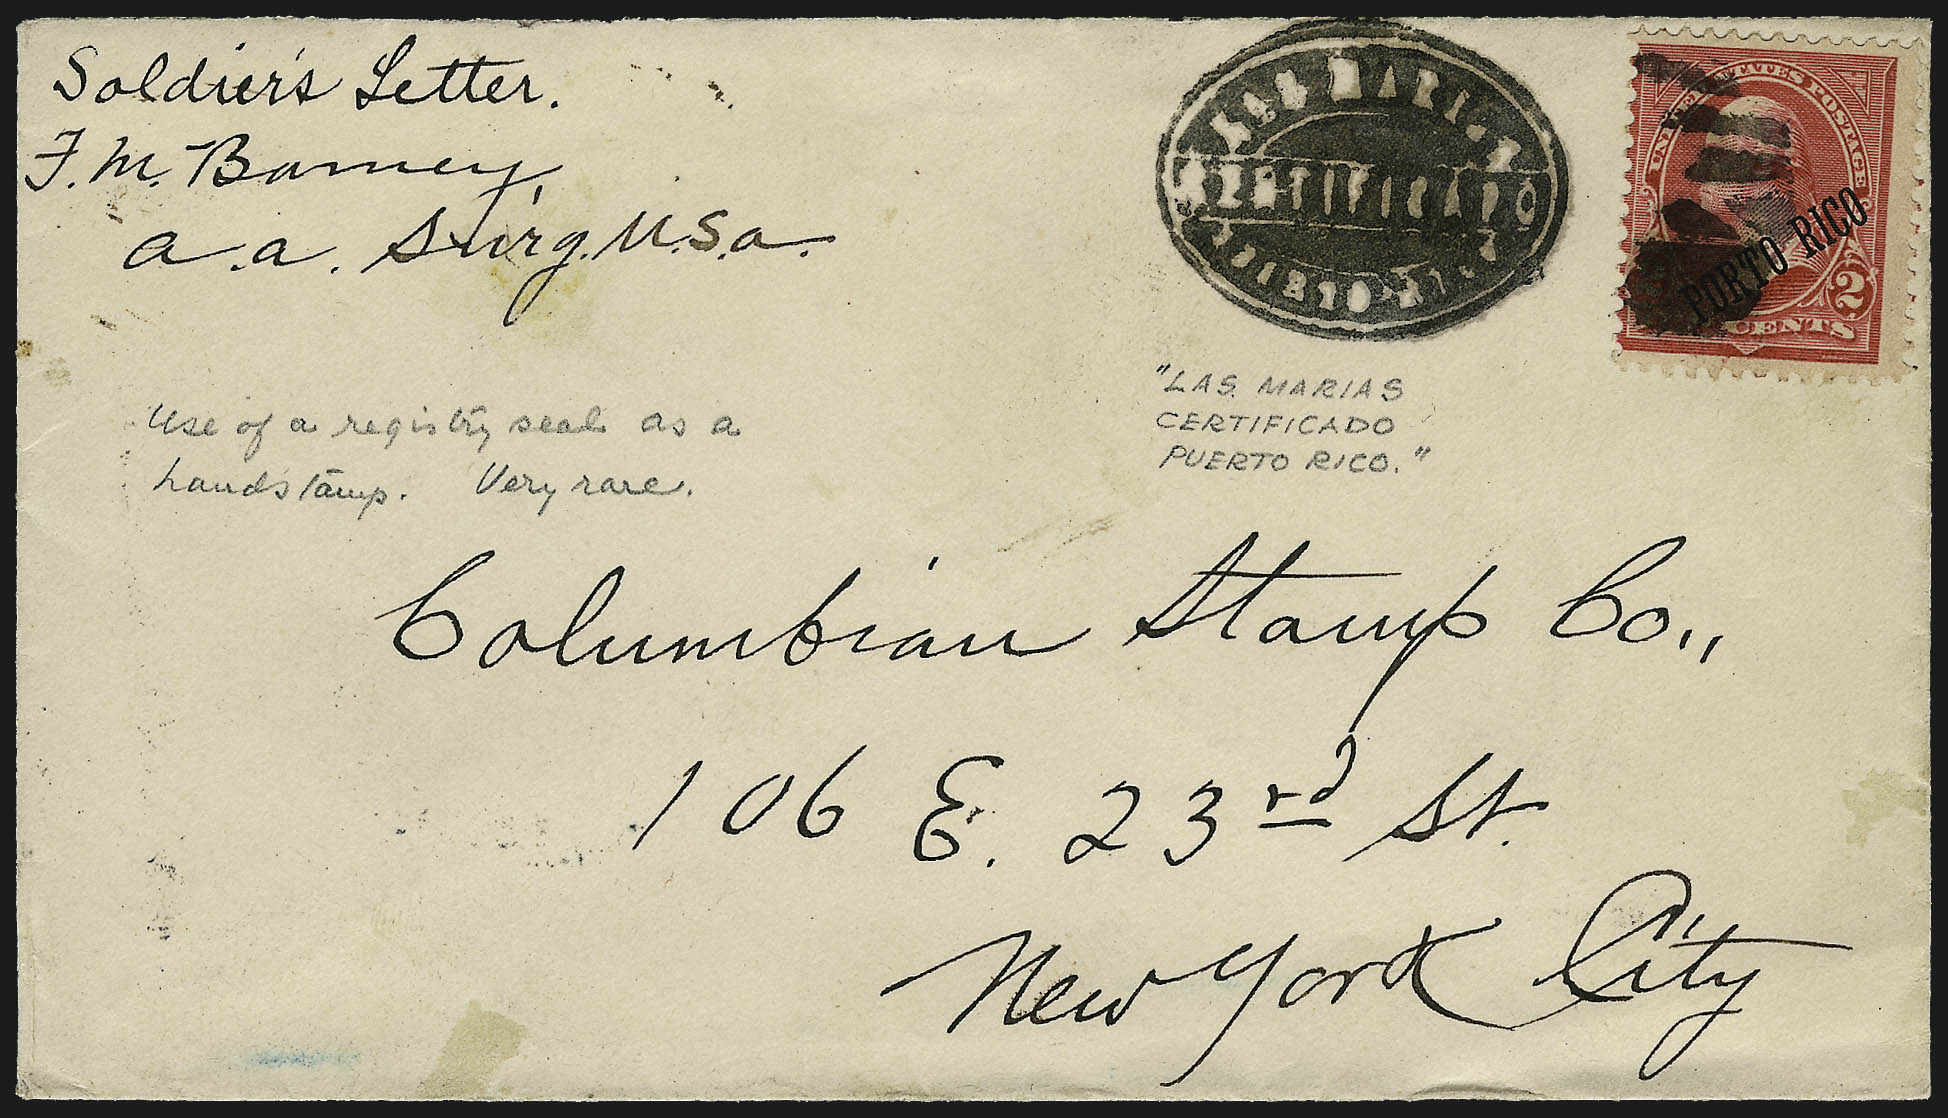 Soldier's Letter.
F. M. Barney,
a.a. Surg. U.S.a.
LAS MARIAS
CERTIFICADO
PUERTO-RICO
UNITED STATES POSTAGE
PORTO RICO
2
CENTS
Use of a registry seal as a
handstamp. Very rare.
"LAS MARIAS
CERTIFICADO
PUERTO RICO."
Columbian Stamp Co.,
106 E. 23rd St.
New York City